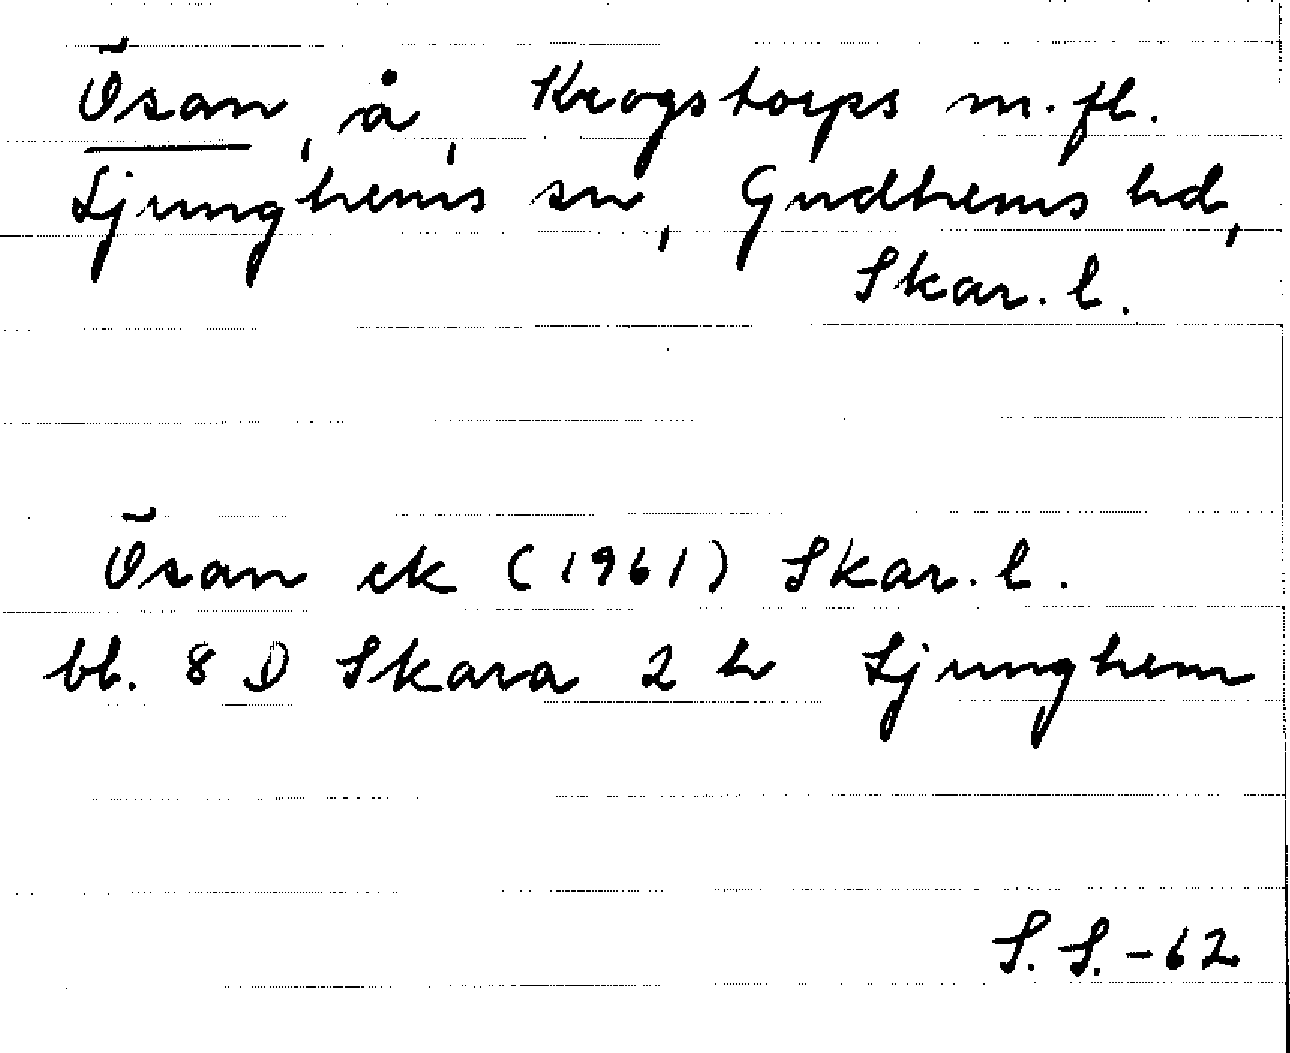 Ösan, å, Krogstorps m. fl.
Ljunghems sn, Gudhems hd,
Skar. l.
Ösan ek (1961) Skar. l.
bl. 8 D Skara 2 h Ljunghem
S. S. -62